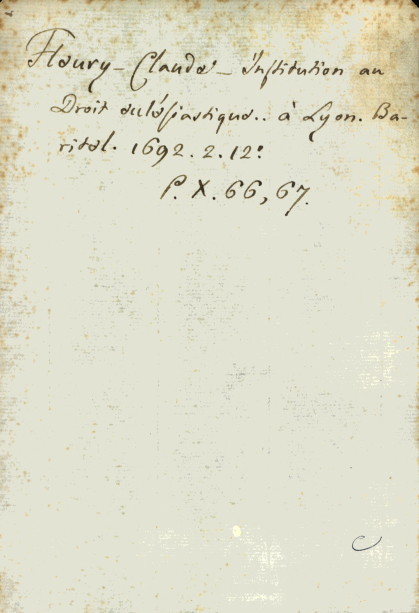 Fleury - Claude - Institution au
Droit eclésiastique.. à Lyon. Ba-
ritel. 1692. 2. 12º
P. X. 66, 67.